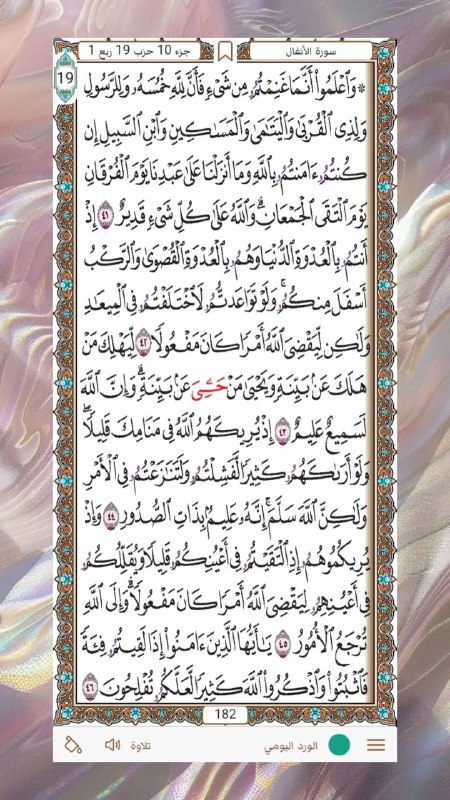 سورة الأنفال
جزء 10 حزب 19 ربع 1
19
۞ وَاعْلَمُوا أَنَّمَا غَنِمْتُمُۥ مِن شَيْءٍ فَأَنَّ لِلَّهِ خُمُسَهُۥ وَلِلرَّسُولِ
وَلِذِي الْقُرْبَىٰ وَالْيَتَٰمَىٰ وَالْمَسَٰكِينِ وَابْنِ السَّبِيلِ إِن
كُنتُمُۥ ءَامَنتُمُۥ بِاللَّهِ وَمَا أَنزَلْنَا عَلَىٰ عَبْدِنَا يَوْمَ الْفُرْقَانِ
يَوْمَ الْتَقَى الْجَمْعَانِ وَاللَّهُ عَلَىٰ كُلِّ شَيْءٍ قَدِيرٌ ٤١ إِذْ
أَنتُمُۥ بِالْعِدْوَةِ الدُّنْيَا وَهُمُۥ بِالْعِدْوَةِ الْقُصْوَىٰ وَالرَّكْبُ
أَسْفَلَ مِنكُمُۥ وَلَوْ تَوَاعَدتُّمُۥ لَاخْتَلَفْتُمُۥ فِي الْمِيعَٰدِ
وَلَٰكِن لِّيَقْضِيَ اللَّهُ أَمْرًا كَانَ مَفْعُولًا ٤٢ لِّيَهْلِكَ مَنْ
هَلَكَ عَنۢ بَيِّنَةٍ وَيَحْيَىٰ مَنْ حَيِيَ عَنۢ بَيِّنَةٍ وَإِنَّ اللَّهَ
لَسَمِيعٌ عَلِيمٌ ٤٣ إِذْ يُرِيكَهُمُ اللَّهُ فِي مَنَامِكَ قَلِيلًا
وَلَوْ أَرَىٰكَهُمُۥ كَثِيرًا لَّفَشِلْتُمُۥ وَلَتَنَٰزَعْتُمُۥ فِي الْأَمْرِ
وَلَٰكِنَّ اللَّهَ سَلَّمَ إِنَّهُۥ عَلِيمٌۢ بِذَاتِ الصُّدُورِ ٤٤ وَإِذْ
يُرِيكُمُوهُمُۥ إِذِ الْتَقَيْتُمُۥ فِي أَعْيُنِكُمُۥ قَلِيلًا وَيُقَلِّلُكُمُۥ
فِي أَعْيُنِهِمُۥ لِيَقْضِيَ اللَّهُ أَمْرًا كَانَ مَفْعُولًا وَإِلَى اللَّهِ
تُرْجَعُ الْأُمُورُ ٤٥ يَٰأَيُّهَا الَّذِينَ ءَامَنُوا إِذَا لَقِيتُمُۥ فِئَةً
فَاثْبُتُوا وَاذْكُرُوا اللَّهَ كَثِيرًا لَّعَلَّكُمُۥ تُفْلِحُونَ ٤٦
182
الورد اليومي
تلاوة